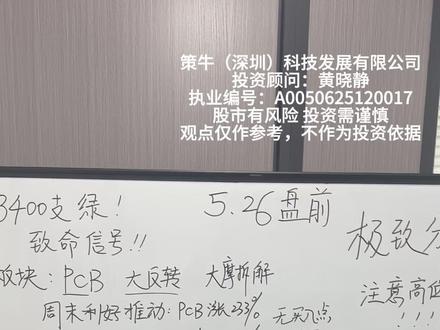 策牛（深圳）科技发展有限公司
投资顾问：黄晓静
执业编号：A0050625120017
股市有风险 投资需谨慎
观点仅作参考，不作为投资依据
3400支绿！
5.26盘前
致命信号!!
极致分
板块：PCB 大反转 大摩拆解
注意高低
周末利好推动：PCB涨233% 无买入点
!!!